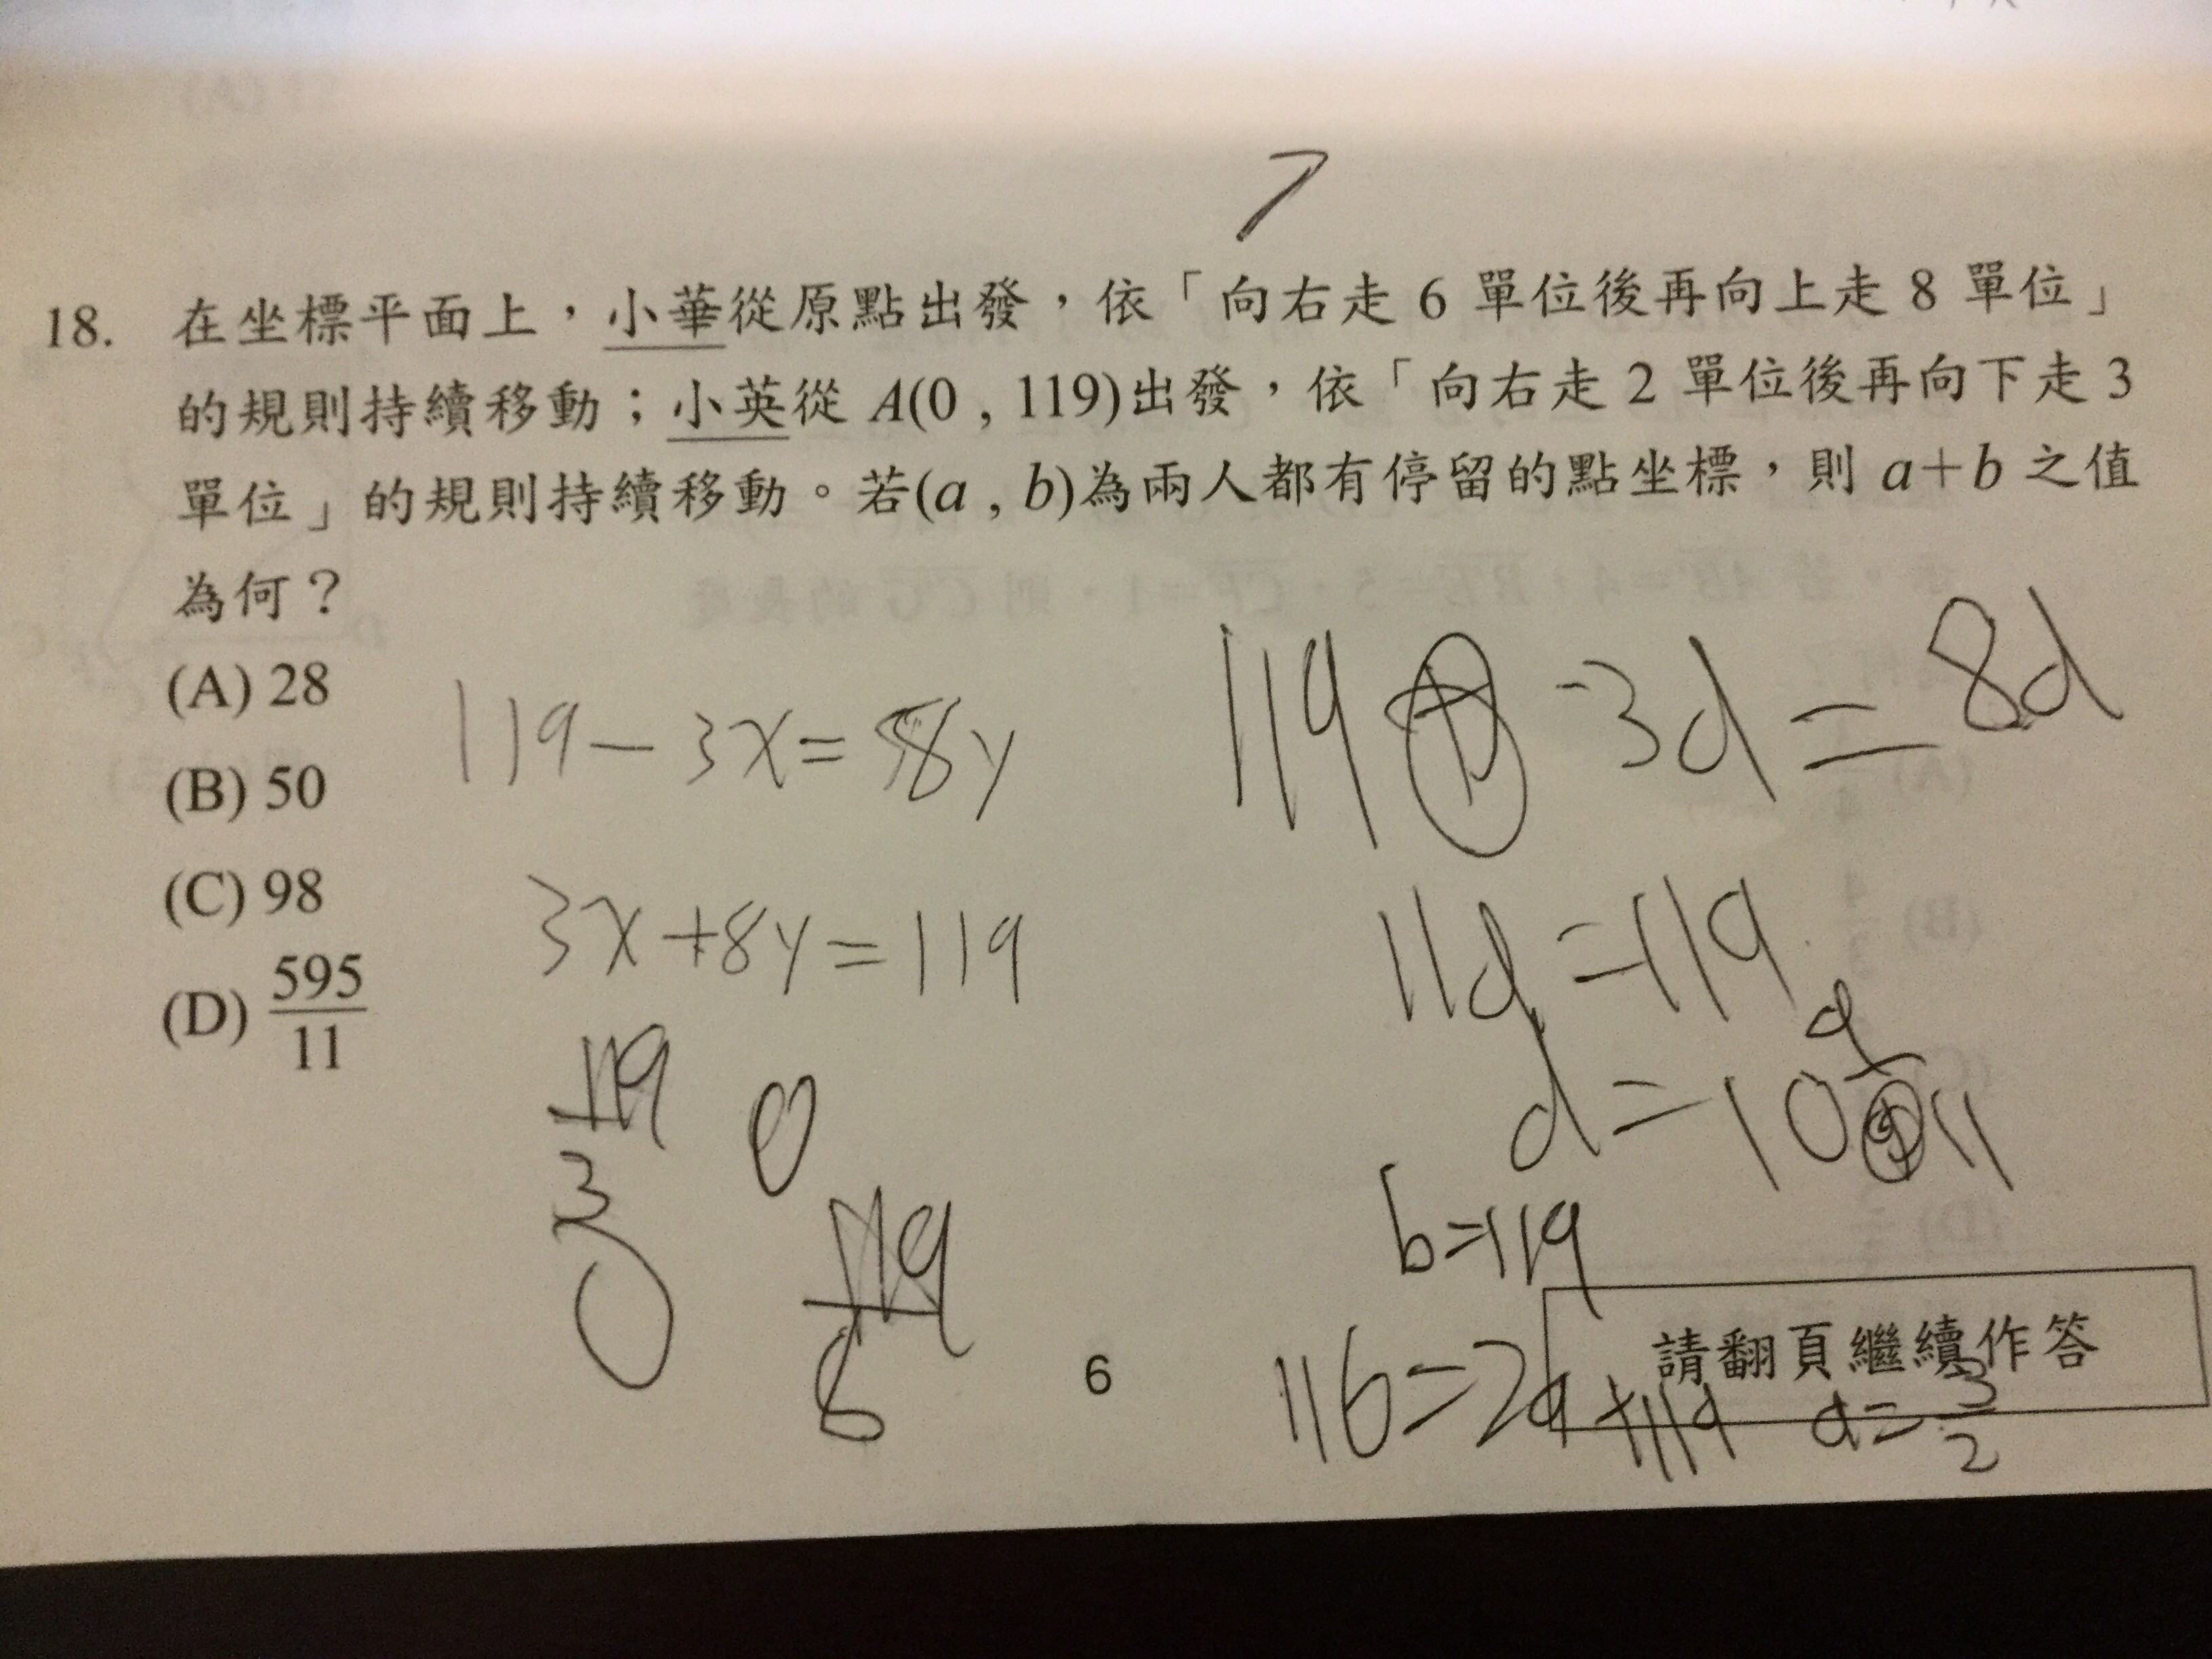 7
18. 在坐標平面上，小華從原點出發，依「向右走 6 單位後再向上走 8 單位」
的規則持續移動；小英從 A(0 , 119)出發，依「向右走 2 單位後再向下走 3
單位」的規則持續移動。若(a , b)為兩人都有停留的點坐標，則 a+b 之值
為何？
(A) 28
(B) 50
(C) 98
(D) 595/11
119-3x=8y
3x+8y=119
119/3
0
0
119/8
119 -3d=8d
11d=119
d=10 9/11
b=119
116=2a+119 a=3/2
請翻頁繼續作答
6